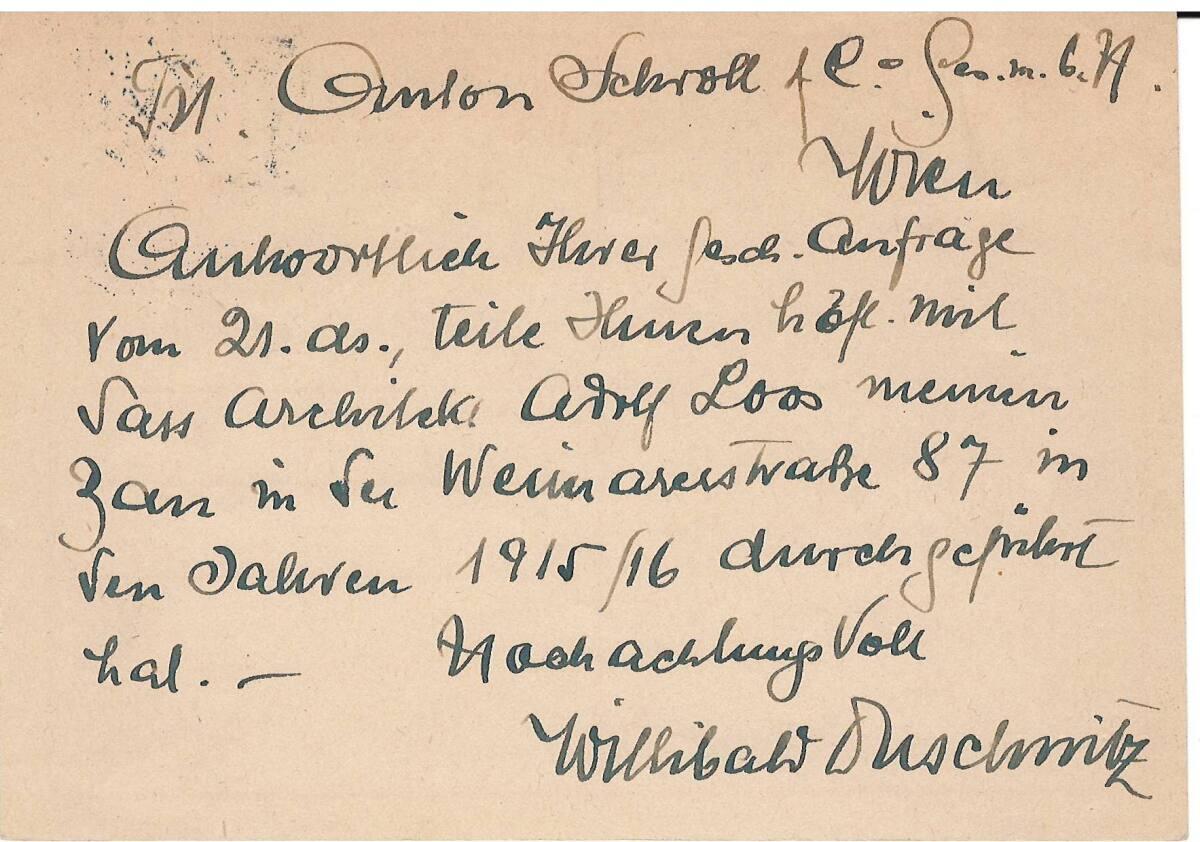 Tit. Anton Schroll & Co Ges. m. b. H.
Wien
Antwortlich Ihrer gesch. Anfrage
vom 21. ds., teile Ihnen höfl. mit
dass Architekt Adolf Loos meinen
Bau in der Weimarerstraße 87 in
den Jahren 1915/16 durchgeführt
hat. —
Hochachtungsvoll
Willibald Duschnitz